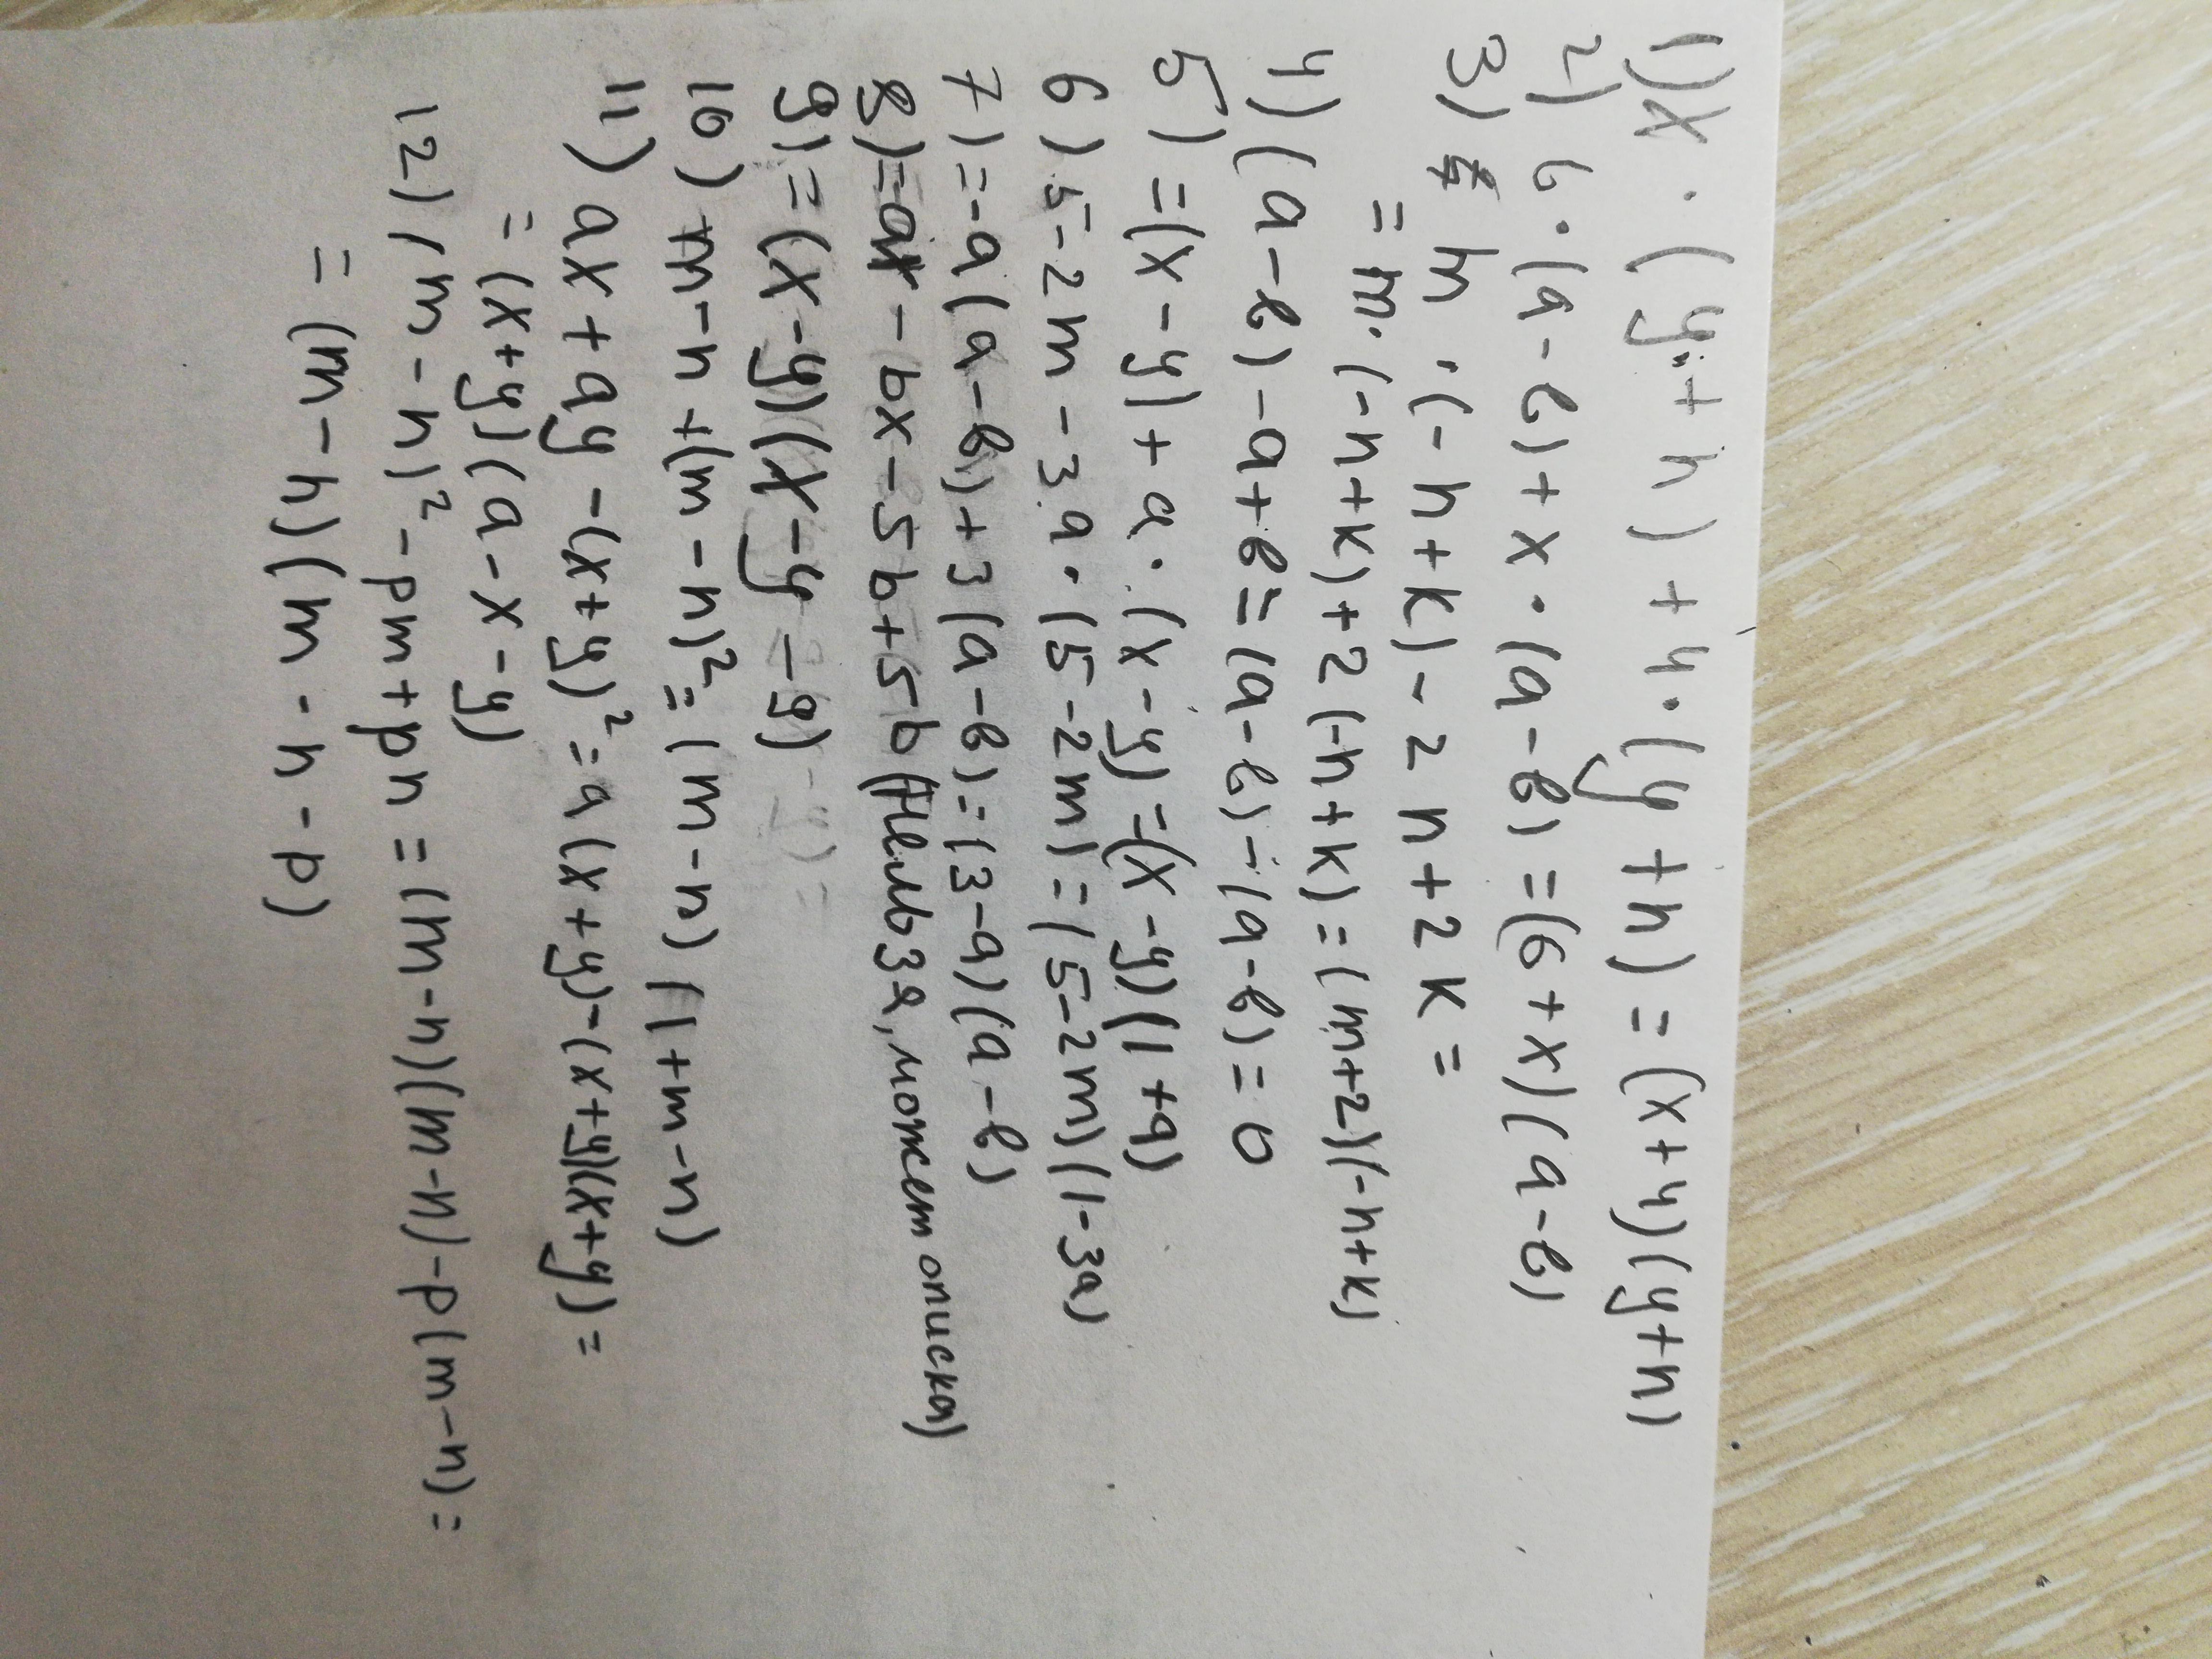 1) x · (y + n) + 4 · (y + n) = (x+4)(y+n)
2) 6 · (a - в) + x · (a - в) = (6+x)(a-в)
3) m · (-n+k) - 2n+2k =
= m · (-n+k)+2(-n+k) = (m+2)(-n+k)
4) (a-в)-a+в = (a-в)-(a-в) = 0
5) =(x-y)+a·(x-y)=(x-y)(1+a)
6) 5-2m-3a·(5-2m)=(5-2m)(1-3a)
7) =-a(a-в)+3(a-в)=(3-a)(a-в)
8) =-ax-bx-5b+5b (нельзя, может описка)
9) =(x-y)(x-y-9)
10) m-n+(m-n)²=(m-n)(1+m-n)
11) ax+ay-(x+y)²=a(x+y)-(x+y)(x+y)=
=(x+y)(a-x-y)
12) (m-n)²-pm+pn=(m-n)(m-n)-p(m-n)=
=(m-n)(m-n-p)